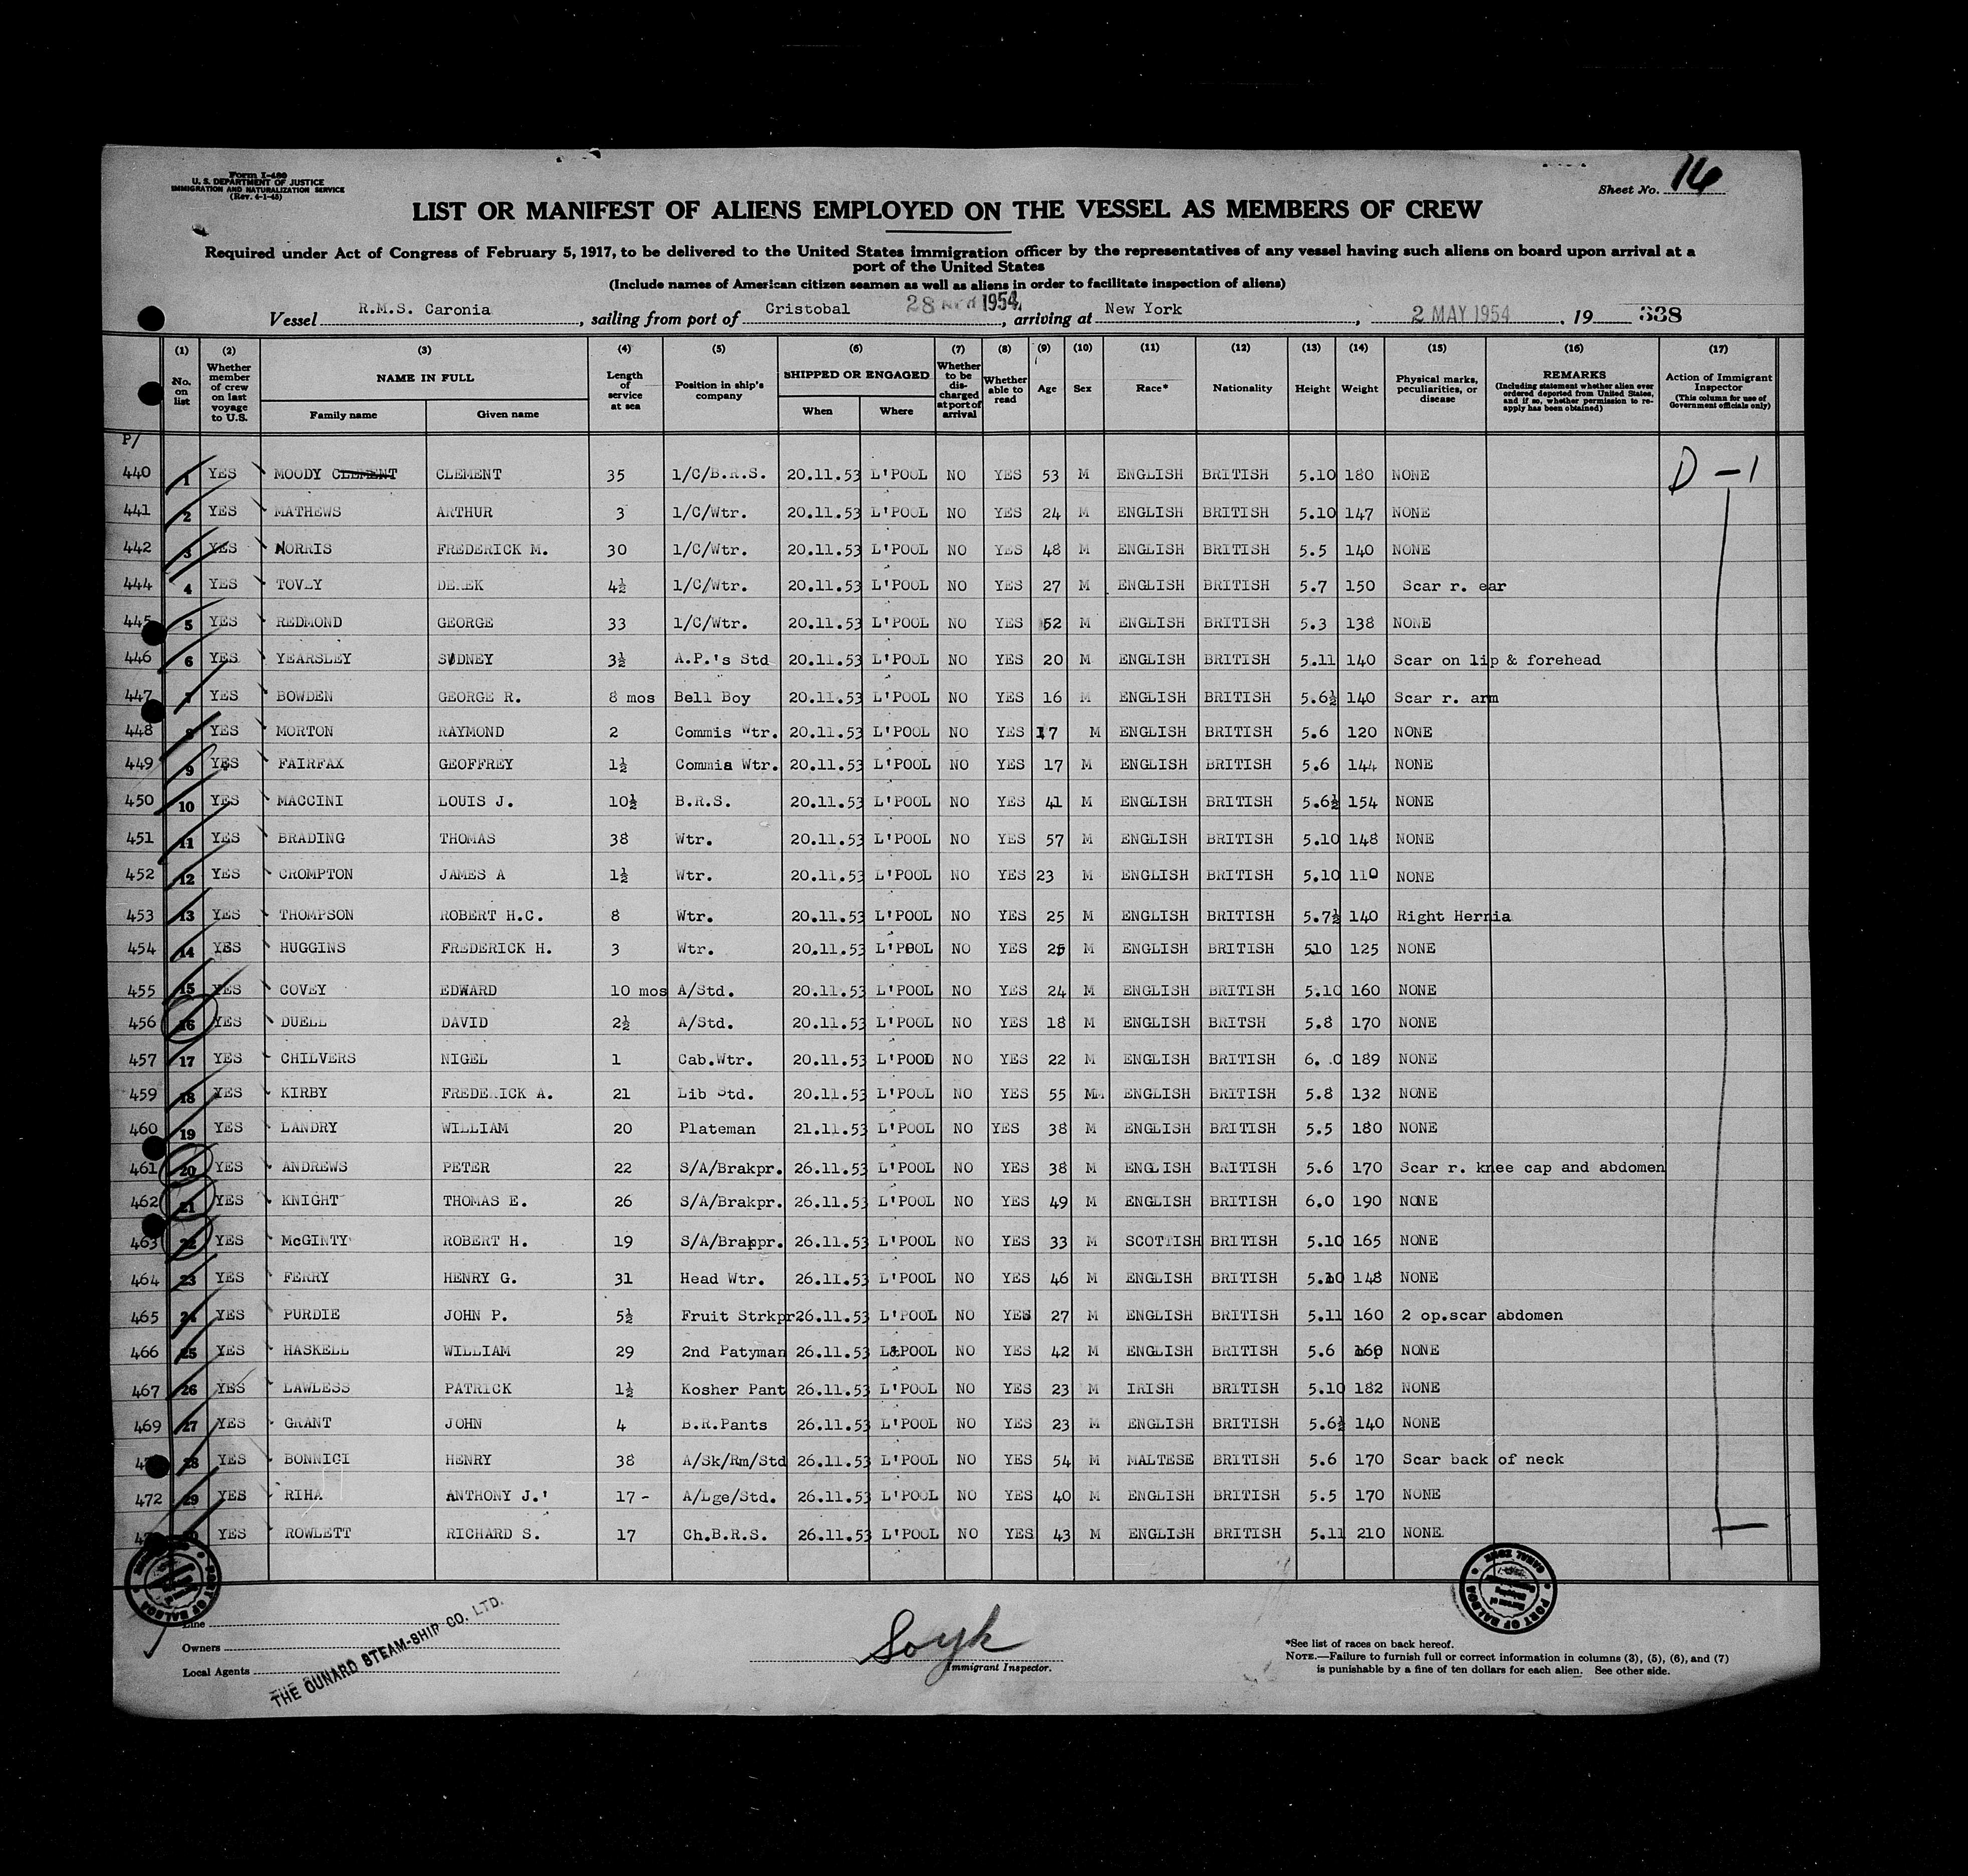 Form I-480
U. S. DEPARTMENT OF JUSTICE
IMMIGRATION AND NATURALIZATION SERVICE
(Rev. 4-1-48)
Sheet No. 14
LIST OR MANIFEST OF ALIENS EMPLOYED ON THE VESSEL AS MEMBERS OF CREW
Required under Act of Congress of February 5, 1917, to be delivered to the United States immigration officer by the representatives of any vessel having such aliens on board upon arrival at a
port of the United States
(Include names of American citizen seamen as well as aliens in order to facilitate inspection of aliens)
Vessel R.M.S. Caronia, sailing from port of Cristobal 28 APR 1954, arriving at New York, 2 MAY 1954, 19 338
(1) (2) (3) (4) (5) (6) (7) (8) (9) (10) (11) (12) (13) (14) (15) (16) (17)
No. on list
Whether member of crew on last voyage to U.S.
NAME IN FULL
Family name
Given name
Length of service at sea
Position in ship's company
SHIPPED OR ENGAGED
When
Where
Whether to be discharged at port of arrival
Whether able to read
Age
Sex
Race*
Nationality
Height
Weight
Physical marks, peculiarities, or disease
REMARKS
(Including statement whether alien ever ordered deported from United States, and if so, whether permission to reapply has been obtained)
Action of Immigrant Inspector
(This column for use of Government officials only)
P/
440 1 YES MOODY CLEMENT CLEMENT 35 1/C/B.R.S. 20.11.53 L'POOL NO YES 53 M ENGLISH BRITISH 5.10 180 NONE D-1
441 2 YES MATHEWS ARTHUR 3 1/C/Wtr. 20.11.53 L'POOL NO YES 24 M ENGLISH BRITISH 5.10 147 NONE
442 3 YES NORRIS FREDERICK M. 30 1/C/Wtr. 20.11.53 L'POOL NO YES 48 M ENGLISH BRITISH 5.5 140 NONE
444 4 YES TOVEY DEREK 4½ 1/C/Wtr. 20.11.53 L'POOL NO YES 27 M ENGLISH BRITISH 5.7 150 Scar r. ear
445 5 YES REDMOND GEORGE 33 1/C/Wtr. 20.11.53 L'POOL NO YES 52 M ENGLISH BRITISH 5.3 138 NONE
446 6 YES YEARSLEY SYDNEY 3½ A.P.'s Std 20.11.53 L'POOL NO YES 20 M ENGLISH BRITISH 5.11 140 Scar on lip & forehead
447 7 YES BOWDEN GEORGE R. 8 mos Bell Boy 20.11.53 L'POOL NO YES 16 M ENGLISH BRITISH 5.6½ 140 Scar r. arm
448 8 YES MORTON RAYMOND 2 Commis Wtr. 20.11.53 L'POOL NO YES 17 M ENGLISH BRITISH 5.6 120 NONE
449 9 YES FAIRFAX GEOFFREY 1½ Commis Wtr. 20.11.53 L'POOL NO YES 17 M ENGLISH BRITISH 5.6 144 NONE
450 10 YES MACCINI LOUIS J. 10½ B.R.S. 20.11.53 L'POOL NO YES 41 M ENGLISH BRITISH 5.6½ 154 NONE
451 11 YES BRADING THOMAS 38 Wtr. 20.11.53 L'POOL NO YES 57 M ENGLISH BRITISH 5.10 148 NONE
452 12 YES CROMPTON JAMES A 1½ Wtr. 20.11.53 L'POOL NO YES 23 M ENGLISH BRITISH 5.10 110 NONE
453 13 YES THOMPSON ROBERT H.C. 8 Wtr. 20.11.53 L'POOL NO YES 25 M ENGLISH BRITISH 5.7½ 140 Right Hernia
454 14 YES HUGGINS FREDERICK H. 3 Wtr. 20.11.53 L'POOL NO YES M ENGLISH BRITISH 5.10 125 NONE
455 15 YES COVEY EDWARD 10 mos A/Std. 20.11.53 L'POOL NO YES 24 M ENGLISH BRITISH 5.10 160 NONE
456 16 YES DUELL DAVID 2½ A/Std. 20.11.53 L'POOL NO YES 18 M ENGLISH BRITSH 5.8 170 NONE
457 17 YES CHILVERS NIGEL 1 Cab.Wtr. 20.11.53 L'POOL NO YES 22 M ENGLISH BRITISH 6. .0 189 NONE
459 18 YES KIRBY FREDERICK A. 21 Lib Std. 20.11.53 L'POOL NO YES 55 M ENGLISH BRITISH 5.8 132 NONE
460 19 YES LANDRY WILLIAM 20 Plateman 21.11.53 L'POOL NO YES 38 M ENGLISH BRITISH 5.5 180 NONE
461 20 YES ANDREWS PETER 22 S/A/Brakpr. 26.11.53 L'POOL NO YES 38 M ENGLISH BRITISH 5.6 170 Scar r. knee cap and abdomen
462 21 YES KNIGHT THOMAS E. 26 S/A/Brakpr. 26.11.53 L'POOL NO YES 49 M ENGLISH BRITISH 6.0 190 NONE
463 22 YES McGINTY ROBERT H. 19 S/A/Brakpr. 26.11.53 L'POOL NO YES 33 M SCOTTISH BRITISH 5.10 165 NONE
464 23 YES FERRY HENRY G. 31 Head Wtr. 26.11.53 L'POOL NO YES 46 M ENGLISH BRITISH 5.10 148 NONE
465 24 YES PURDIE JOHN P. 5½ Fruit Strkpr 26.11.53 L'POOL NO YES 27 M ENGLISH BRITISH 5.11 160 2 op.scar abdomen
466 25 YES HASKELL WILLIAM 29 2nd Patyman 26.11.53 L&POOL NO YES 42 M ENGLISH BRITISH 5.6 160 NONE
467 26 YES LAWLESS PATRICK 1½ Kosher Pant 26.11.53 L'POOL NO YES 23 M IRISH BRITISH 5.10 182 NONE
469 27 YES GRANT JOHN 4 B.R.Pants 26.11.53 L'POOL NO YES 23 M ENGLISH BRITISH 5.6½ 140 NONE
28 YES BONNICI HENRY 38 A/Sk/Rm/Std 26.11.53 L'POOL NO YES 54 M MALTESE BRITISH 5.6 170 Scar back of neck
472 29 YES RIHA ANTHONY J.' 17 - A/Lge/Std. 26.11.53 L'POOL NO YES 40 M ENGLISH BRITISH 5.5 170 NONE
YES ROWLETT RICHARD S. 17 Ch.B.R.S. 26.11.53 L'POOL NO YES 43 M ENGLISH BRITISH 5.11 210 NONE
PORT OF BALBOA
PORT OF BALBOA CANAL ZONE
Line
Owners
Local Agents
THE CUNARD STEAM-SHIP CO. LTD.
Immigrant Inspector.
*See list of races on back hereof.
NOTE.—Failure to furnish full or correct information in columns (3), (5), (6), and (7)
is punishable by a fine of ten dollars for each alien. See other side.